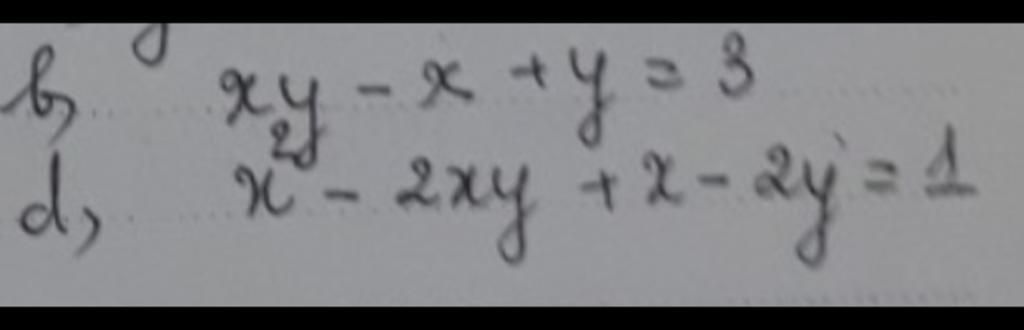 b, xy - x + y = 3
d, x² - 2xy + x - 2y = 1